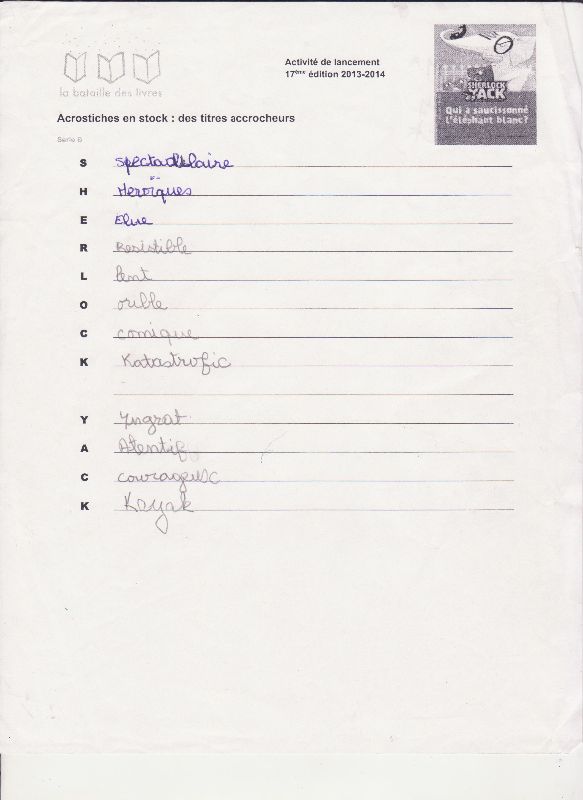 la bataille des livres
Activité de lancement
17ème édition 2013-2014
SHERLOCK YACK
Qui a saucissonné l'éléphant blanc?
Acrostiches en stock : des titres accrocheurs
Serie 6
S spectaculaire
H Heroïques
E Elue
R Resistible
L lent
O orible
C comique
K Katastrofic
Y Yngrat
A Atentif
C courageux
K Kayak